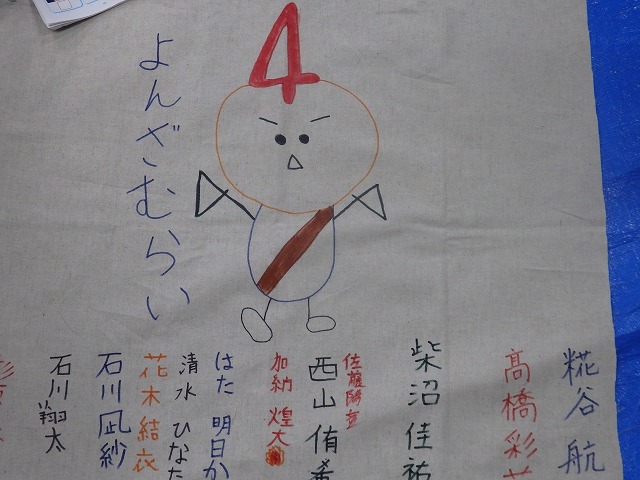 4
よんざむらい
糀谷 航
高橋 彩
柴沼 佳祐
佐藤
西山 侑希
加納 煌大
はた 明日か
清水 ひなた
花木 結衣
石川 凪紗
石川 翔太